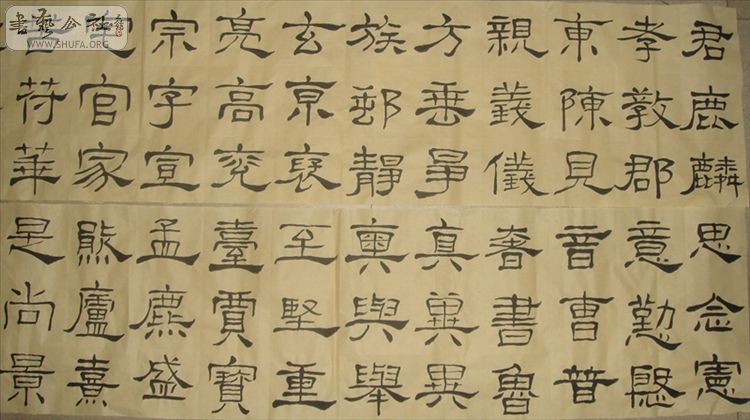 君鹿麟
孝教郡
東陳見
親義儀
方垂爭
族郵靜
玄京褒
亮高兗
宗字宣
官家
苻華
思念憲
意勤慇
音曹普
奢書魯
真冀異
奧與舉
至堅重
臺賈寶
孟麃盛
熊廬熹
是尚景
書藝公社
WWW.SHUFA.ORG